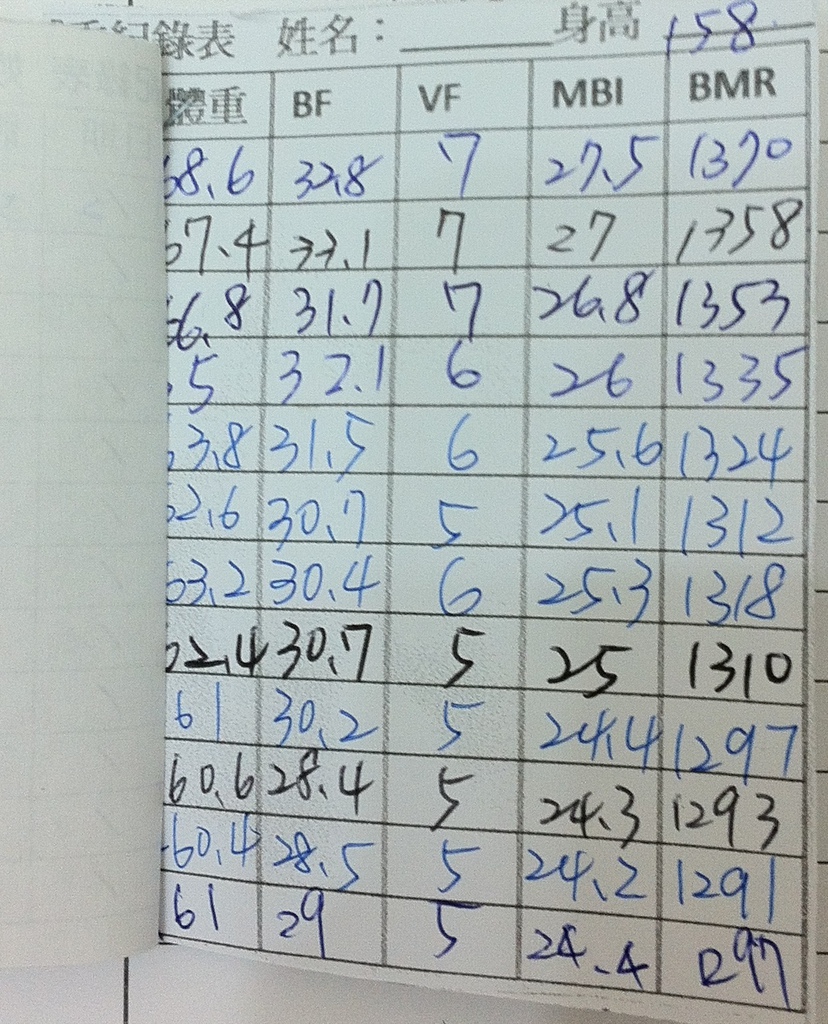 紀錄表 姓名：______ 身高 158
體重 BF VF MBI BMR
68.6 32.8 7 27.5 1370
67.4 33.1 7 27 1358
66.8 31.7 7 26.8 1353
5 32.1 6 26 1335
63.8 31.5 6 25.6 1324
62.6 30.7 5 25.1 1312
63.2 30.4 6 25.3 1318
62.4 30.7 5 25 1310
61 30.2 5 24.4 1297
60.6 28.4 5 24.3 1293
60.4 28.5 5 24.2 1291
61 29 5 24.4 1297